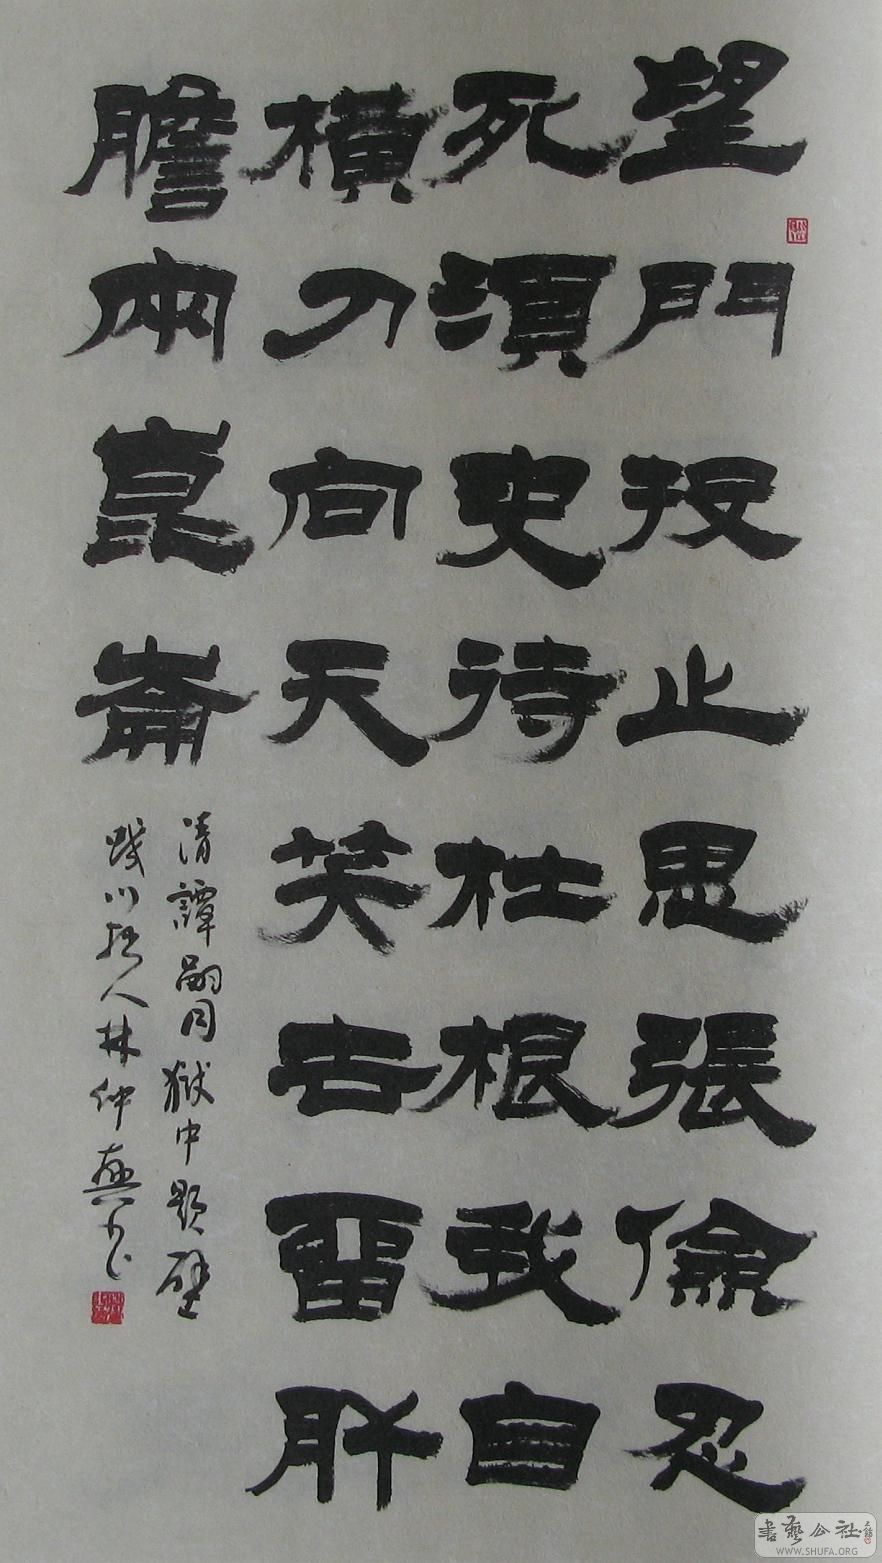 望門投止思張儉忍
死須臾待杜根我自
橫刀向天笑去留肝
膽兩崑崙
清譚嗣同獄中題壁
川人林仲興書
書藝公社
WWW.SHUFA.ORG